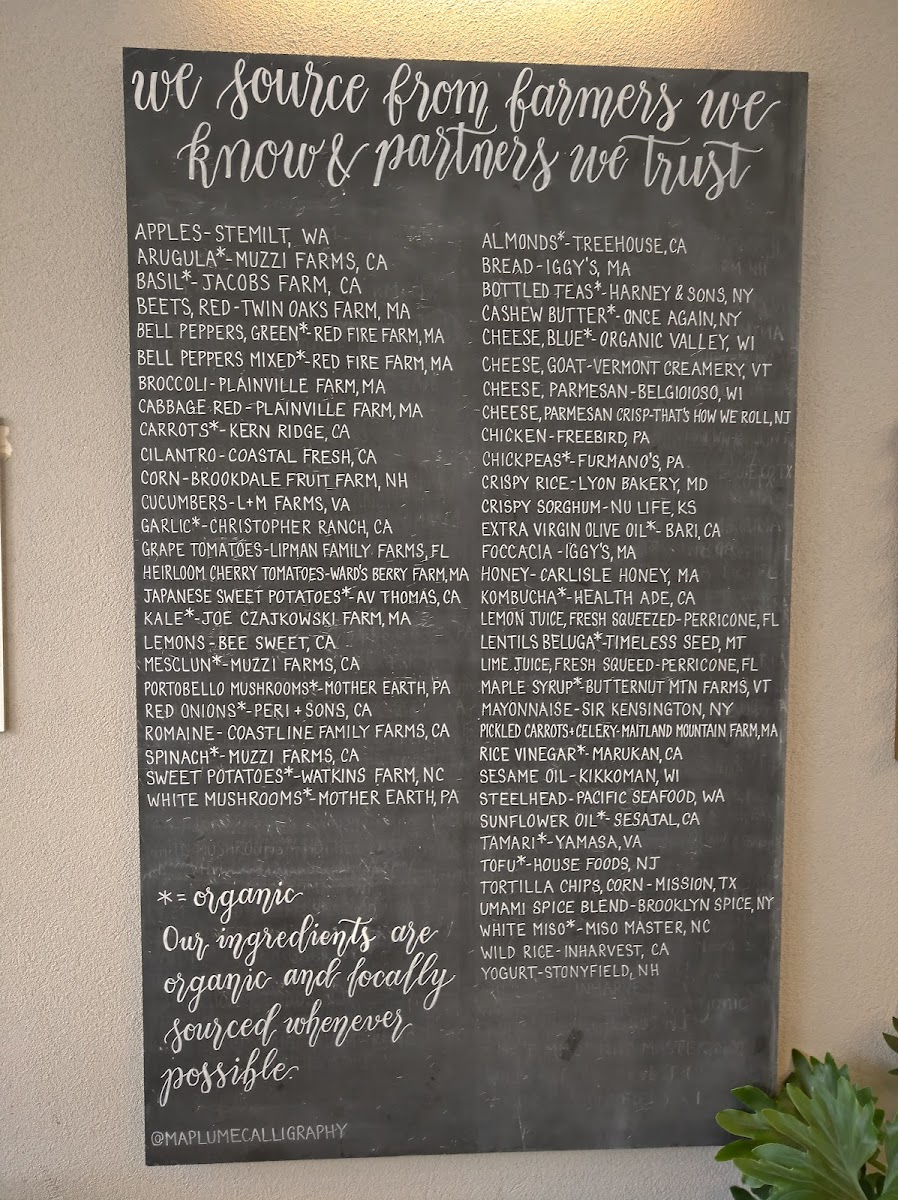 we source from farmers we
know & partners we trust
APPLES-STEMILT, WA
ARUGULA*-MUZZI FARMS, CA
BASIL*-JACOBS FARM, CA
BEETS, RED-TWIN OAKS FARM, MA
BELL PEPPERS, GREEN*-RED FIRE FARM, MA
BELL PEPPERS MIXED*-RED FIRE FARM, MA
BROCCOLI-PLAINVILLE FARM, MA
CABBAGE RED-PLAINVILLE FARM, MA
CARROTS*-KERN RIDGE, CA
CILANTRO-COASTAL FRESH, CA
CORN-BROOKDALE FRUIT FARM, NH
CUCUMBERS-L+M FARMS, VA
GARLIC*-CHRISTOPHER RANCH, CA
GRAPE TOMATOES-LIPMAN FAMILY FARMS, FL
HEIRLOOM CHERRY TOMATOES-WARD'S BERRY FARM, MA
JAPANESE SWEET POTATOES*-AV THOMAS, CA
KALE*-JOE CZAJKOWSKI FARM, MA
LEMONS-BEE SWEET, CA
MESCLUN*-MUZZI FARMS, CA
PORTOBELLO MUSHROOMS*-MOTHER EARTH, PA
RED ONIONS*-PERI+SONS, CA
ROMAINE-COASTLINE FAMILY FARMS, CA
SPINACH*-MUZZI FARMS, CA
SWEET POTATOES*-WATKINS FARM, NC
WHITE MUSHROOMS*-MOTHER EARTH, PA
*=organic
Our ingredients are
organic and locally
sourced whenever
possible
@MAPLUMECALLIGRAPHY
ALMONDS*-TREEHOUSE, CA
BREAD-IGGY'S, MA
BOTTLED TEAS*-HARNEY & SONS, NY
CASHEW BUTTER*-ONCE AGAIN, NY
CHEESE, BLUE*-ORGANIC VALLEY, WI
CHEESE, GOAT-VERMONT CREAMERY, VT
CHEESE, PARMESAN-BELGIOIOSO, WI
CHEESE, PARMESAN CRISP-THAT'S HOW WE ROLL, NJ
CHICKEN-FREEBIRD, PA
CHICKPEAS*-FURMANO'S, PA
CRISPY RICE-LYON BAKERY, MD
CRISPY SORGHUM-NU LIFE, KS
EXTRA VIRGIN OLIVE OIL*-BARI, CA
FOCCACIA-IGGY'S, MA
HONEY-CARLISLE HONEY, MA
KOMBUCHA*-HEALTH ADE, CA
LEMON JUICE, FRESH SQUEEZED-PERRICONE, FL
LENTILS BELUGA*-TIMELESS SEED, MT
LIME JUICE, FRESH SQUEED-PERRICONE, FL
MAPLE SYRUP*-BUTTERNUT MTN FARMS, VT
MAYONNAISE-SIR KENSINGTON, NY
PICKLED CARROTS+CELERY-MAITLAND MOUNTAIN FARM, MA
RICE VINEGAR*-MARUKAN, CA
SESAME OIL-KIKKOMAN, WI
STEELHEAD-PACIFIC SEAFOOD, WA
SUNFLOWER OIL*-SESAJAL, CA
TAMARI*-YAMASA, VA
TOFU*-HOUSE FOODS, NJ
TORTILLA CHIPS, CORN-MISSION, TX
UMAMI SPICE BLEND-BROOKLYN SPICE, NY
WHITE MISO*-MISO MASTER, NC
WILD RICE-INHARVEST, CA
YOGURT-STONYFIELD, NH